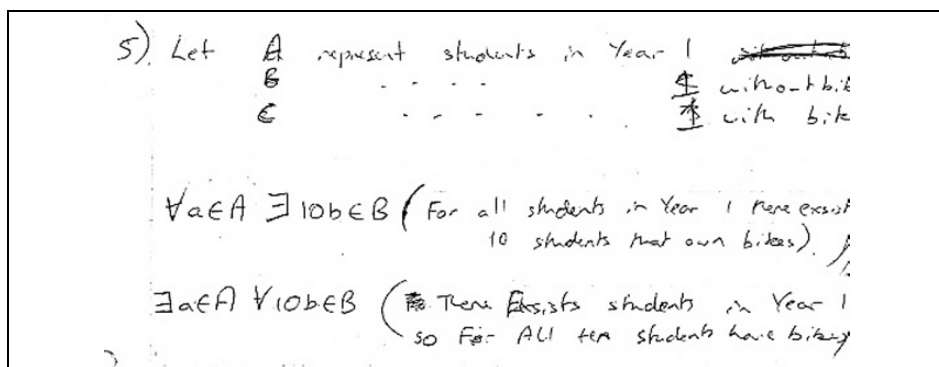 5). Let A represent students in Year 1
B - - - - 1 without bik
C - - - - - 1 with bik
∀a∈A ∃10b∈B (For all students in Year 1 there exsist
10 students that own bikes).
∃a∈A ∀10b∈B ( There Exsists students in Year 1
so For All ten students have bikes